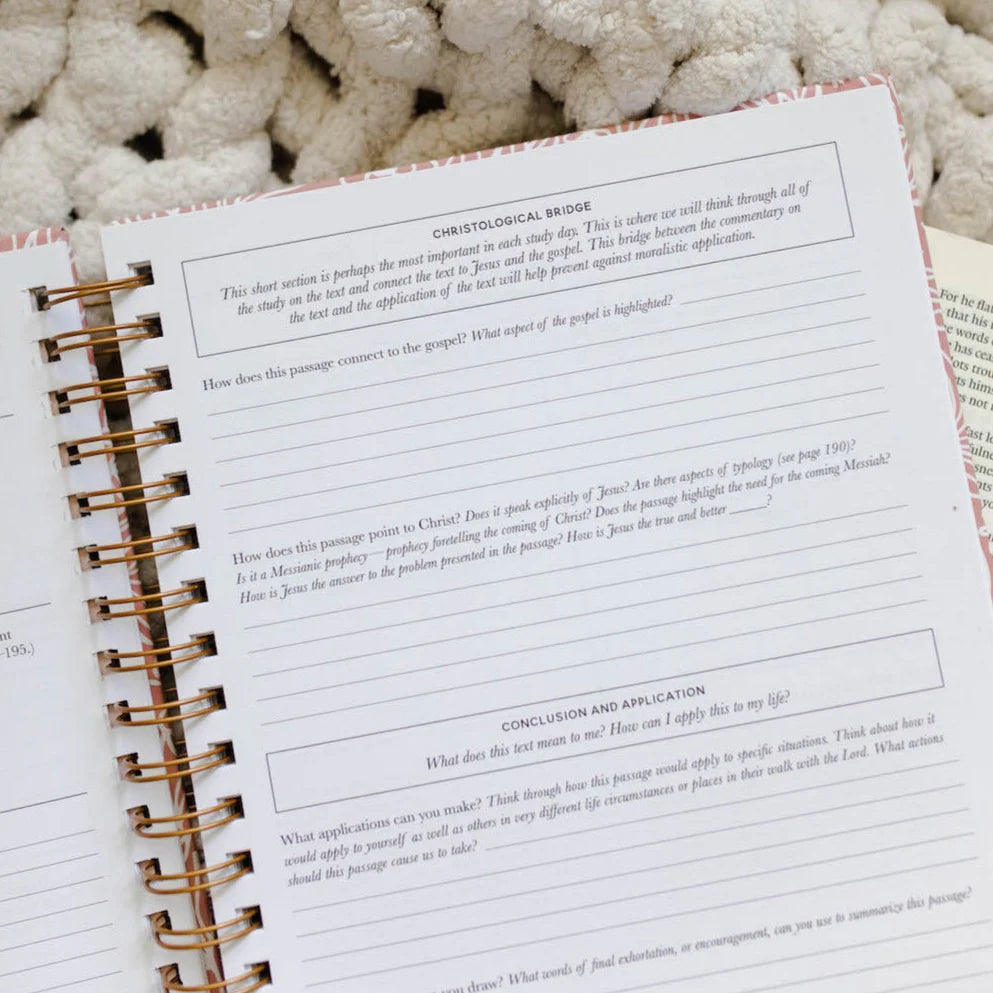 nt
-195.)
CHRISTOLOGICAL BRIDGE
This short section is perhaps the most important in each study day. This is where we will think through all of
the study on the text and connect the text to Jesus and the gospel. This bridge between the commentary on
the text and the application of the text will help prevent against moralistic application.
How does this passage connect to the gospel? What aspect of the gospel is highlighted?
How does this passage point to Christ? Does it speak explicitly of Jesus? Are there aspects of typology (see page 190)?
Is it a Messianic prophecy—prophecy foretelling the coming of Christ? Does the passage highlight the need for the coming Messiah?
How is Jesus the answer to the problem presented in the passage? How is Jesus the true and better _____?
CONCLUSION AND APPLICATION
What does this text mean to me? How can I apply this to my life?
What applications can you make? Think through how this passage would apply to specific situations. Think about how it
would apply to yourself as well as others in very different life circumstances or places in their walk with the Lord. What actions
should this passage cause us to take?
you draw? What words of final exhortation, or encouragement, can you use to summarize this passage?
For he flat
that his i
words
has cea
ots trou
ts hims
s not